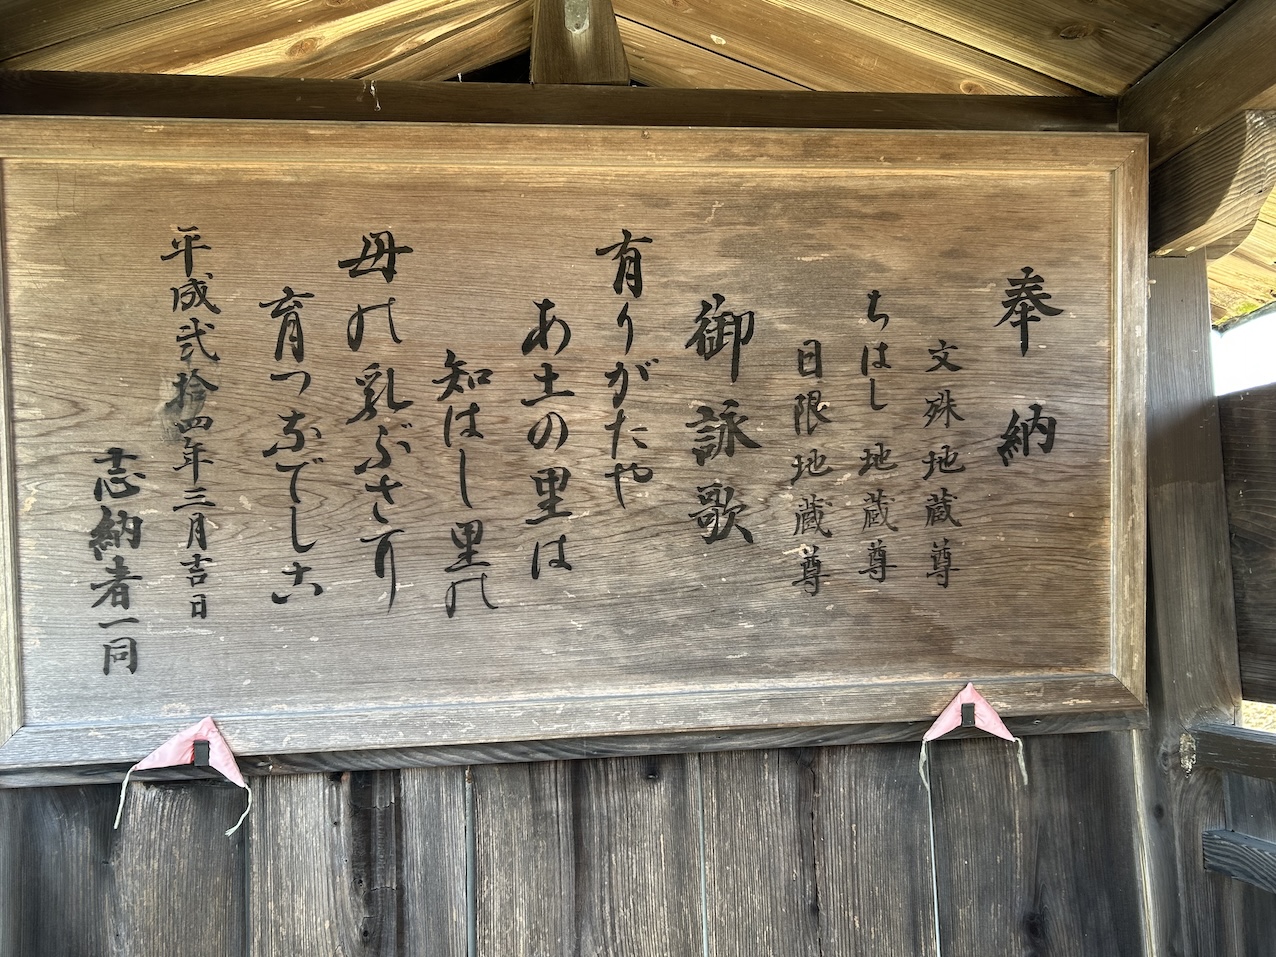 奉納
文殊地蔵尊
ちはし地蔵尊
日限地蔵尊
御詠歌
有りがたや
あ土の里は
知はし里の
母の乳ぶさり
育つなでしこ
平成弐拾四年三月吉日
志納者一同